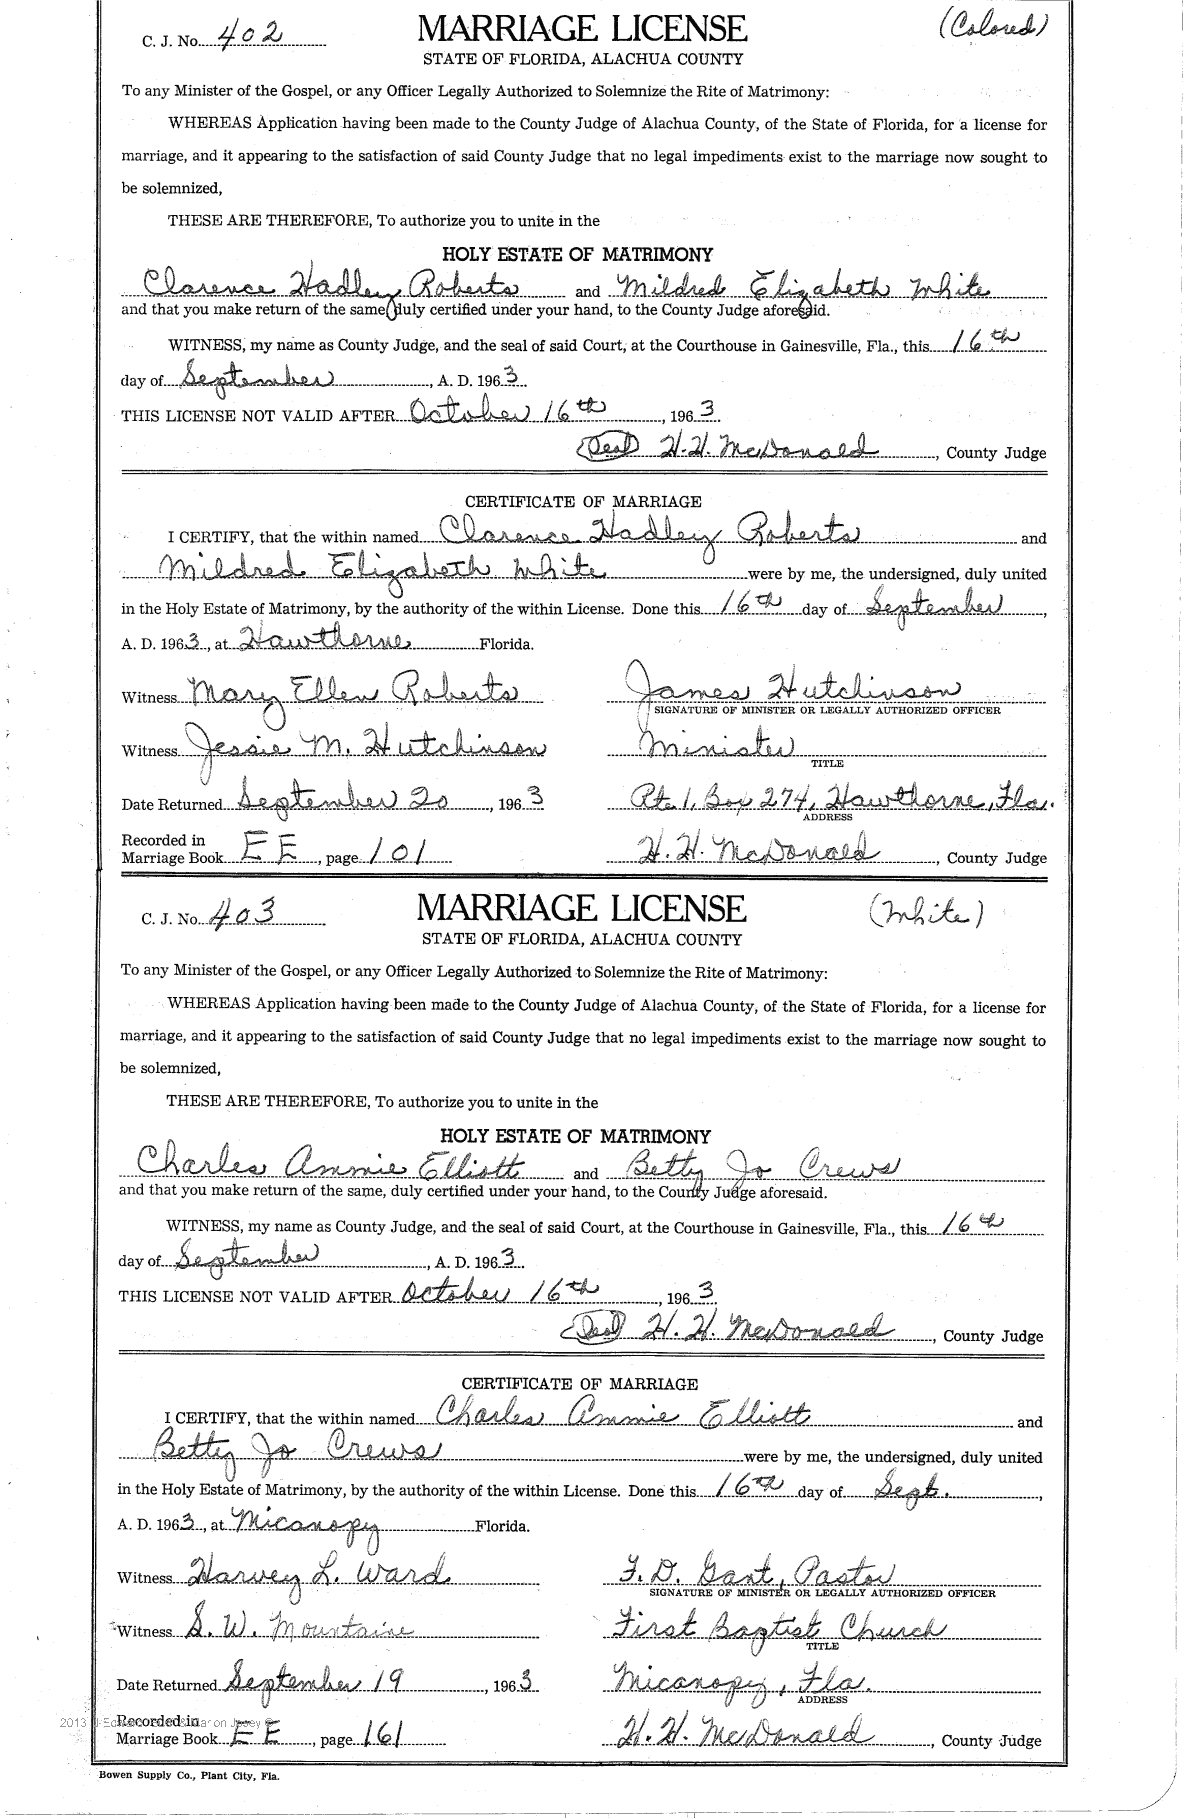 C. J. No. 402 MARRIAGE LICENSE (Colored)
STATE OF FLORIDA, ALACHUA COUNTY
To any Minister of the Gospel, or any Officer Legally Authorized to Solemnize the Rite of Matrimony:
WHEREAS Application having been made to the County Judge of Alachua County, of the State of Florida, for a license for
marriage, and it appearing to the satisfaction of said County Judge that no legal impediments exist to the marriage now sought to
be solemnized,
THESE ARE THEREFORE, To authorize you to unite in the
HOLY ESTATE OF MATRIMONY
Clarence Hadley Roberts and Mildred Elizabeth White
and that you make return of the same, duly certified under your hand, to the County Judge aforesaid.
WITNESS, my name as County Judge, and the seal of said Court, at the Courthouse in Gainesville, Fla., this 16th
day of September, A. D. 1963
THIS LICENSE NOT VALID AFTER October 16th, 1963
(Seal) H. H. McDonald, County Judge
CERTIFICATE OF MARRIAGE
I CERTIFY, that the within named Clarence Hadley Roberts and
Mildred Elizabeth White were by me, the undersigned, duly united
in the Holy Estate of Matrimony, by the authority of the within License. Done this 16th day of September,
A. D. 1963, at Hawthorne Florida.
Witness Mary Ellen Roberts James Hutchinson
SIGNATURE OF MINISTER OR LEGALLY AUTHORIZED OFFICER
Witness Jessie M. Hutchinson Minister
TITLE
Date Returned September 20, 1963 Rt. 1, Box 274, Hawthorne, Fla.
ADDRESS
Recorded in
Marriage Book EE, page 101 H. H. McDonald, County Judge
C. J. No. 403 MARRIAGE LICENSE (White)
STATE OF FLORIDA, ALACHUA COUNTY
To any Minister of the Gospel, or any Officer Legally Authorized to Solemnize the Rite of Matrimony:
WHEREAS Application having been made to the County Judge of Alachua County, of the State of Florida, for a license for
marriage, and it appearing to the satisfaction of said County Judge that no legal impediments exist to the marriage now sought to
be solemnized,
THESE ARE THEREFORE, To authorize you to unite in the
HOLY ESTATE OF MATRIMONY
Charles Ammie Elliott and Betty Jo Crews
and that you make return of the same, duly certified under your hand, to the County Judge aforesaid.
WITNESS, my name as County Judge, and the seal of said Court, at the Courthouse in Gainesville, Fla., this 16th
day of September, A. D. 1963
THIS LICENSE NOT VALID AFTER October 16th, 1963
(Seal) H. H. McDonald, County Judge
CERTIFICATE OF MARRIAGE
I CERTIFY, that the within named Charles Ammie Elliott and
Betty Jo Crews were by me, the undersigned, duly united
in the Holy Estate of Matrimony, by the authority of the within License. Done this 16th day of Sept.,
A. D. 1963, at Micanopy Florida.
Witness Harvey L. Ward F. D. Gant, Pastor
SIGNATURE OF MINISTER OR LEGALLY AUTHORIZED OFFICER
Witness S. W. Mountaine First Baptist Church
TITLE
Date Returned September 19, 1963 Micanopy, Fla.
ADDRESS
2013
Recorded in
Marriage Book EE, page 161 H. H. McDonald, County Judge
Bowen Supply Co., Plant City, Fla.